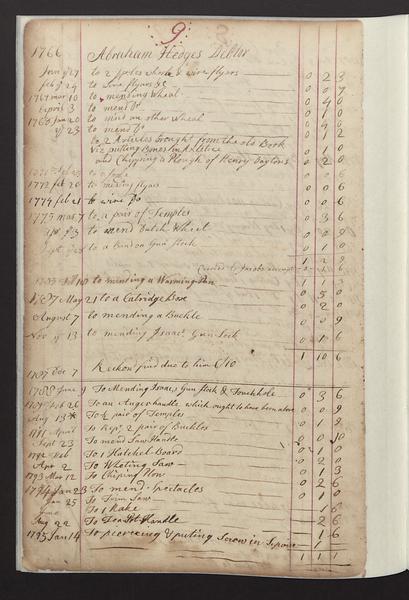 9
1766 Abraham Hedges Debtor
Janry 27 to 2 spoles whorls & wire flyers 0 2 3
feby 24 to 0 0 7
1767 mar 10 to mending Wheal 0 4 0
April 3 to mend Do 0 1 0
1768 Jan 20 to mend an other Wheel 0 4 0
23 to mend Do 0 1 2
to 2 Articles brought from the old Book
viz putting 0 1 0
and Chipping a Plough of Henry Daytons 0 2 0
to 0 6
1772 feb 20 to mending flyers 0 0 6
1774 feb 21 to wire Do 0 0 6
1775 mar 7 to a pair of Temples 0 3 6
to mend Dutch Wheel 0 0 9
to a Gun Stock 0 1 0
1 2 9
to mending a Warming Pan 1 1 3
1787 May 21 to a Catridge Box 0 5 0
August 7 to mending a Buckle 0 0 9
Nov 13 to mending Isaacs Gun Lock 0 1 6
1 10 6
1787 Dec 7 Reckond and due to him
1788 June 9 To Mending Isaacs Gun Stock & Touchhole 0 3 6
Feb 26 To an Auger handle which ought to have been above 0 0 9
Aug 13 To ½ pair of Temples 0 0 9
1791 April To Repr 2 pair of Buckles 0 1 9
Sept 23 To mend Saw Handle 0 0 10
1792 Feb To 1 Hatchel board 0 1 0
Apr 2 To Wheting Saw 0 2 0
1793 Mar 12 To Chiping Plow 0 1 3
1794 Jan 23 To mend Spectacles 0 2 6
Jan 25 To Trim Saw 0 1 0
June To 1 Rake 1 6
Aug 22 To Tea Pot Handle 2 6
1795 Jan 14 To & puting Screw in 1 6
1 1 1